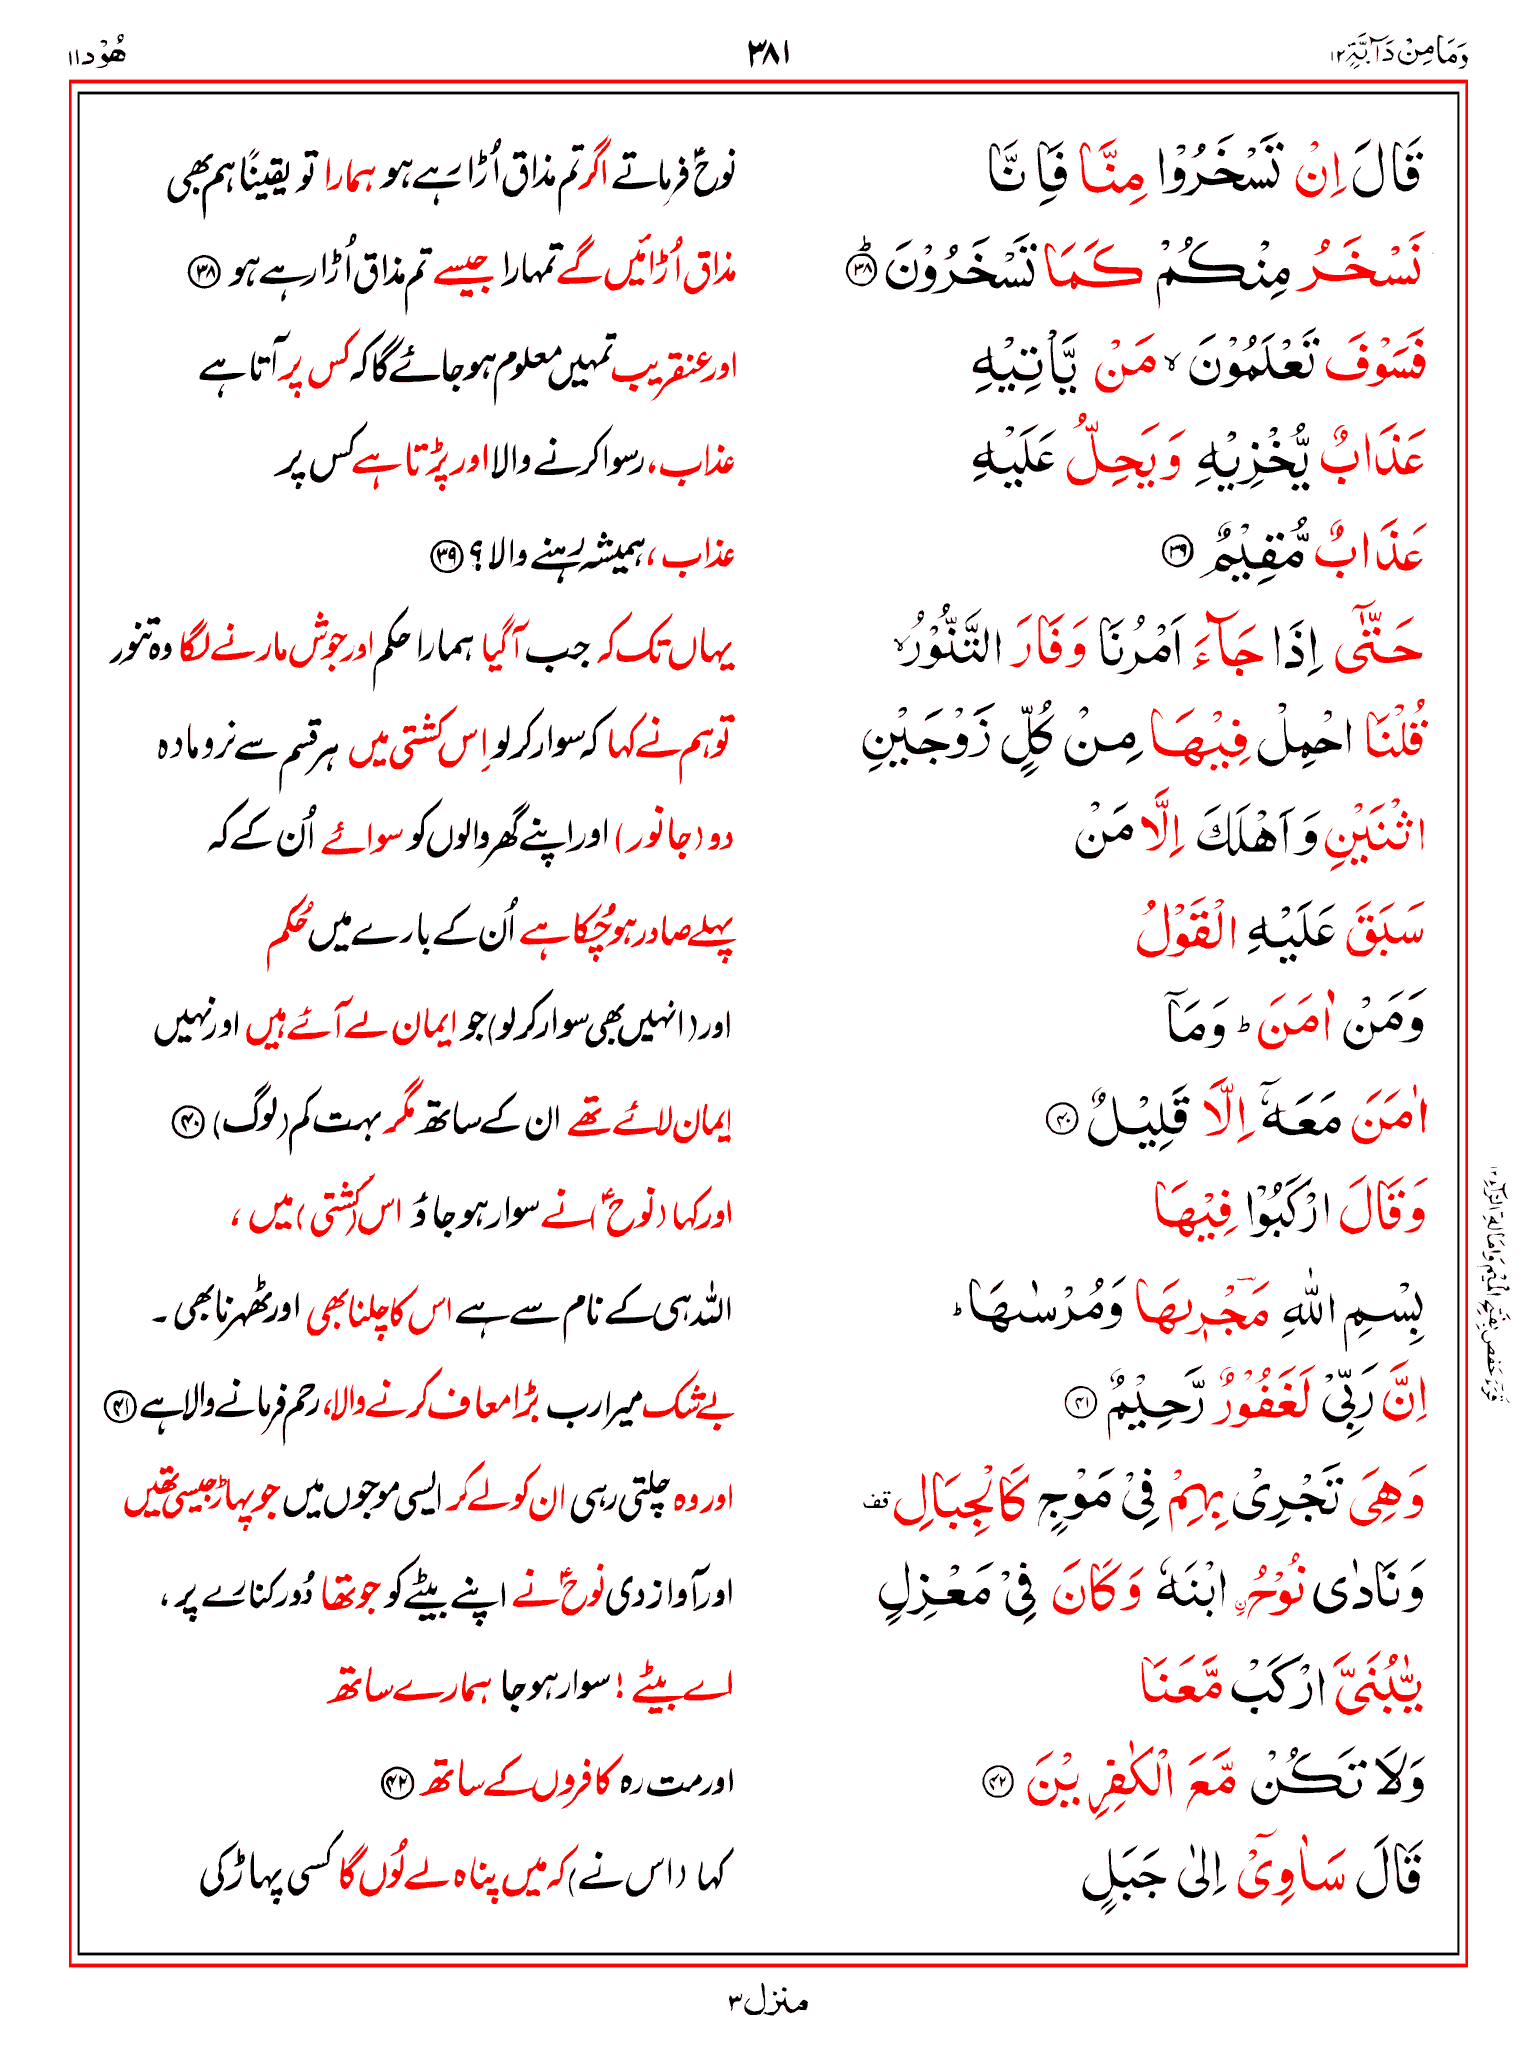 وَمَا مِنْ دَآبَّةٍ ۱۲ ۳۸۱ هُوْد ۱۱
قَالَ اِنْ تَسْخَرُوْا مِنَّا فَاِنَّا نوحؑ فرماتے اگر تم مذاق اُڑا رہے ہو ہمارا تو یقینًا ہم بھی
نَسْخَرُ مِنْكُمْ كَمَا تَسْخَرُوْنَ ؕ ۳۸ مذاق اُڑائیں گے تمہارا جیسے تم مذاق اُڑا رہے ہو ۳۸
فَسَوْفَ تَعْلَمُوْنَ ۙ مَنْ يَّاْتِيْهِ اور عنقریب تمہیں معلوم ہو جائے گا کہ کس پر آتا ہے
عَذَابٌ يُّخْزِيْهِ وَيَحِلُّ عَلَيْهِ عذاب، رسوا کرنے والا اور پڑتا ہے کس پر
عَذَابٌ مُّقِيْمٌ ۳۹ عذاب، ہمیشہ رہنے والا؟ ۳۹
حَتّٰۤى اِذَا جَآءَ اَمْرُنَا وَفَارَ التَّنُّوْرُ ۙ یہاں تک کہ جب آ گیا ہمارا حکم اور جوش مارنے لگا وہ تنور
قُلْنَا احْمِلْ فِيْهَا مِنْ كُلٍّ زَوْجَيْنِ تو ہم نے کہا کہ سوار کر لو اِس کشتی میں ہر قسم سے نر و مادہ
اثْنَيْنِ وَاَهْلَكَ اِلَّا مَنْ دو (جانور) اور اپنے گھر والوں کو سوائے اُن کے کہ
سَبَقَ عَلَيْهِ الْقَوْلُ پہلے صادر ہو چُکا ہے اُن کے بارے میں حُکم
وَمَنْ اٰمَنَ ؕ وَمَاۤ اور (انہیں بھی سوار کر لو) جو ایمان لے آئے ہیں اور نہیں
اٰمَنَ مَعَهٗۤ اِلَّا قَلِيْلٌ ۴۰ ایمان لائے تھے ان کے ساتھ مگر بہت کم (لوگ) ۴۰
وَقَالَ ارْكَبُوْا فِيْهَا اور کہا (نوحؑ) نے سوار ہو جاؤ اس (کشتی) میں،
بِسْمِ اللّٰهِ مَجْرٖىهَا وَمُرْسٰىهَا ؕ اللہ ہی کے نام سے ہے اس کا چلنا بھی اور ٹھہرنا بھی۔
اِنَّ رَبِّيْ لَغَفُوْرٌ رَّحِيْمٌ ۴۱ بے شک میرا رب بڑا معاف کرنے والا، رحم فرمانے والا ہے ۴۱
وَهِيَ تَجْرِيْ بِهِمْ فِيْ مَوْجٍ كَالْجِبَالِ قف اور وہ چلتی رہی ان کو لے کر ایسی موجوں میں جو پہاڑ جیسی تھیں
وَنَادٰى نُوْحُ ۨ ابْنَهٗ وَكَانَ فِيْ مَعْزِلٍ اور آواز دی نوحؑ نے اپنے بیٹے کو جو تھا دُور کنارے پر،
يّٰبُنَيَّ ارْكَبْ مَّعَنَا اے بیٹے! سوار ہو جا ہمارے ساتھ
وَلَا تَكُنْ مَّعَ الْكٰفِرِيْنَ ۴۲ اور مت رہ کافروں کے ساتھ ۴۲
قَالَ سَاٰوِيْۤ اِلٰى جَبَلٍ کہا (اس نے) کہ میں پناہ لے لُوں گا کسی پہاڑ کی
منزل ۳